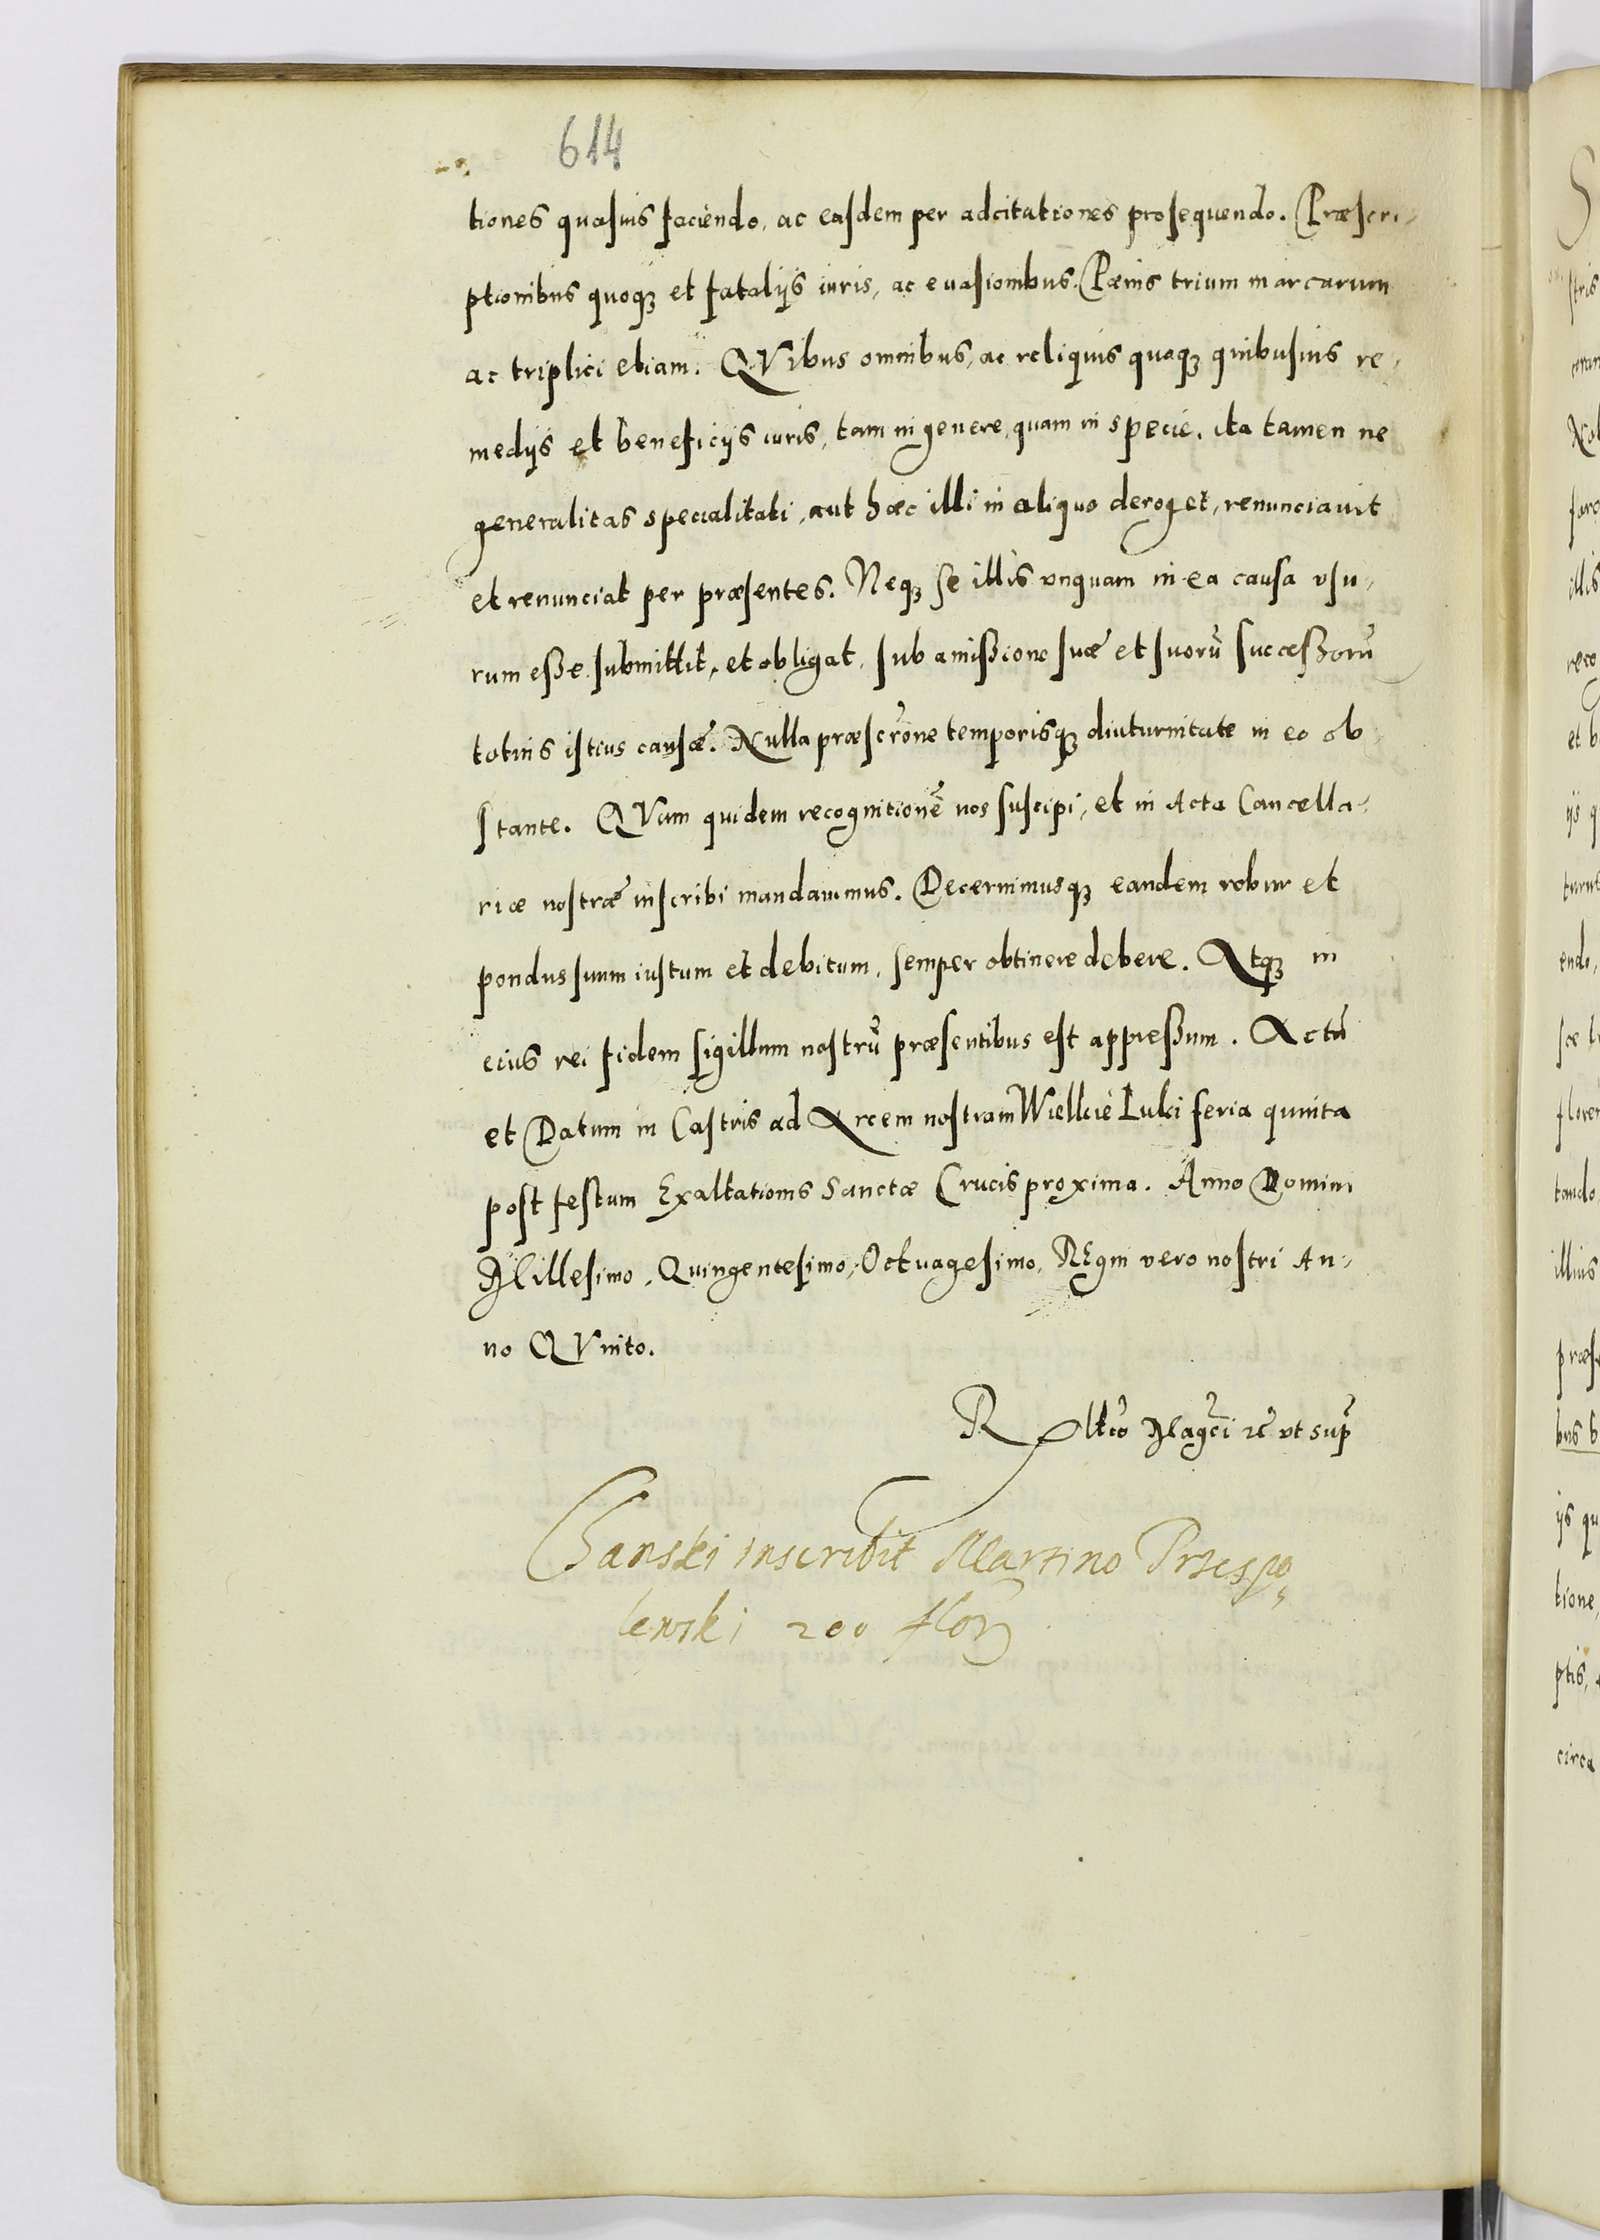 614
tiones quasuis faciendo, ac easdem per adcitationes prosequendo. Præscri-
ptionibus quoq3 et fatalijs iuris, ac euasionibus. Pænis trium marcarum
ac triplici etiam. QVibus omnibus, ac reliquis quoq3 quibusuis re-
medijs et beneficijs iuris, tam in genere, quam in specie, ita tamen ne
generalitas specialitati, aut hæc illi in aliquo deroget, renunciauit
et renunciat per præsentes. Neq3 se illis vnquam in ea causa vsu-
rum eße submittit, et obligat, sub amißione suæ et suorū succeßorū
totius istius causæ. Nulla præscrōne temporisq3 diuturnitate in eo ob-
stante. QVam quidem recognitionē nos suscipi, et in Acta Cancella-
riæ nostræ inscribi mandauimus. Decernimusq3 eandem robur et
pondus suum iustum et debitum, semper obtinere debere. Atq3 in
eius rei fidem sigillum nostrū præsentibus est appreßum. Actū
et Datum in Castris ad Arcem nostram Wielkie Luki feria quinta
post festum Exaltationis Sanctæ Crucis proxima. Anno Domini
Millesimo, Quingentesimo, Octuagesimo, REgni vero nostri An-
no QVinto.
R ut sup
Chanski inscribit Martino Przespo
lewski 200 flor